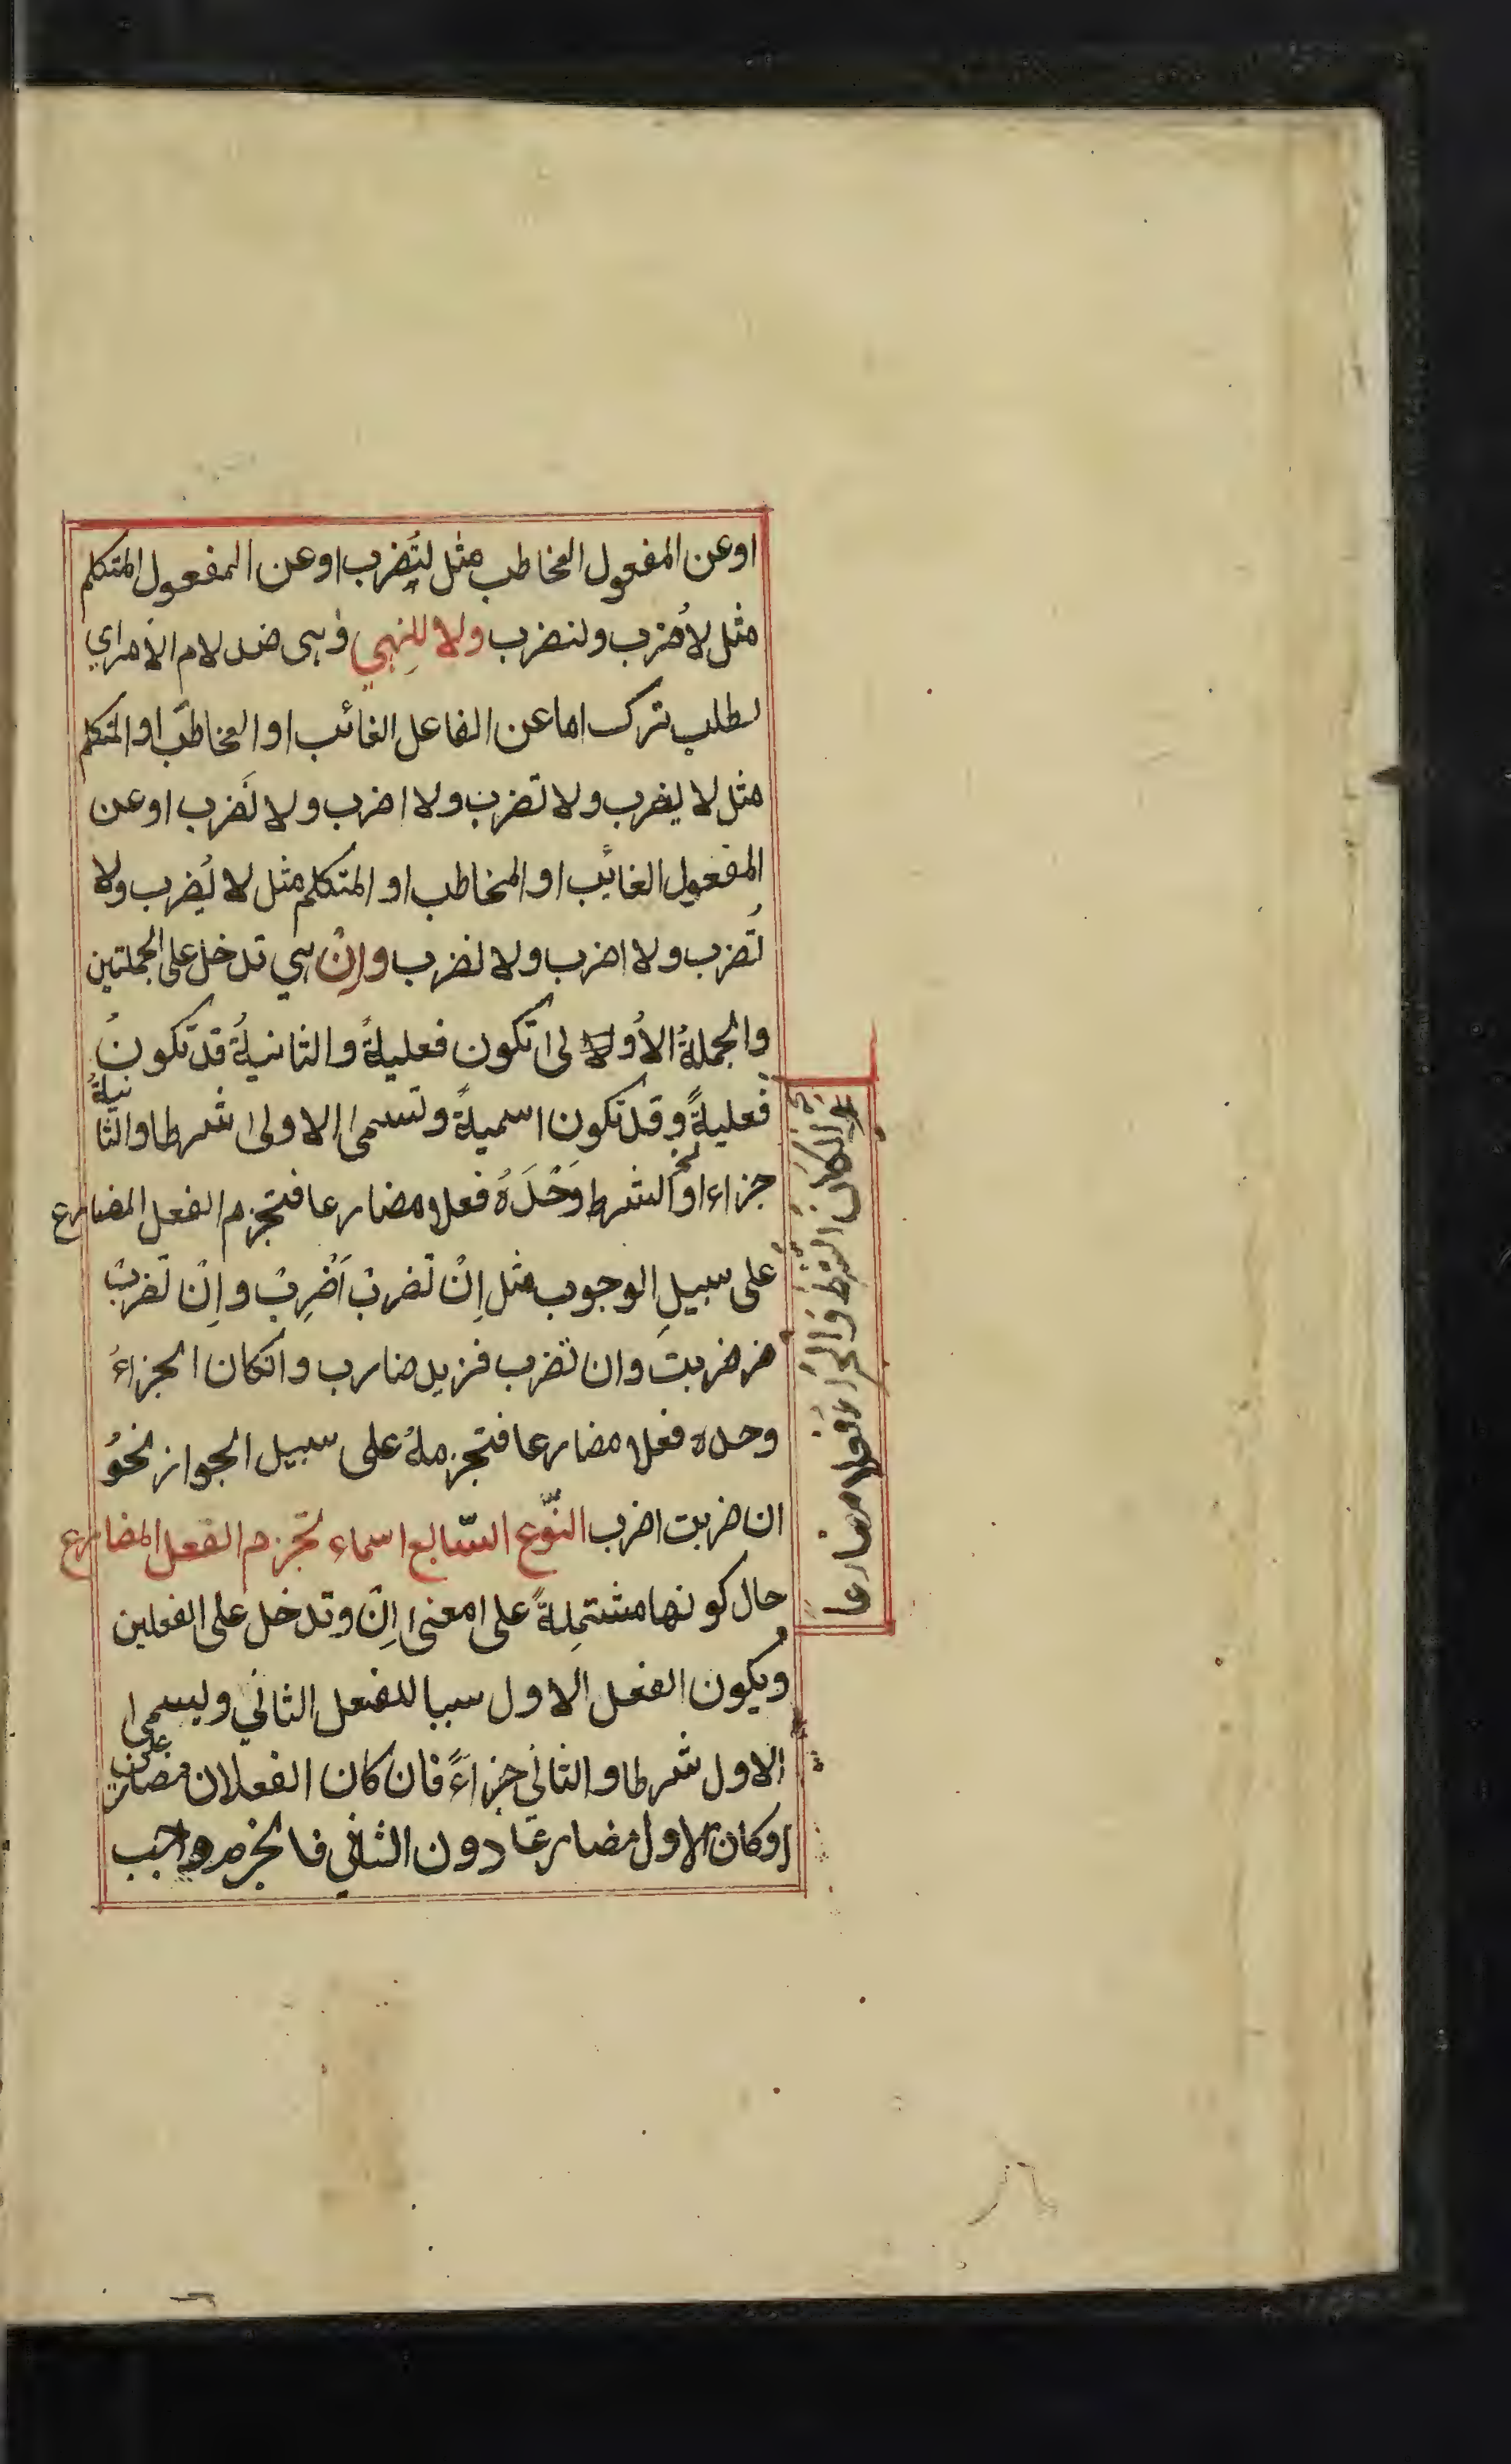 او عن المفعول المخاطب مثل لتُضرب او عن المفعول المتكلم
مثل لاُضرب ولنضرب ولا للنهي وهى ضد لام الأمر اي
لطلب ترك اما عن الفاعل الغائب او المخاطَب او المتكلم
مثل لا يضرب ولا تضرب ولا اضرب ولا نَضرب او عن
المفعول الغائب او المخاطب او المتكلم مثل لا يُضرب ولا
تُضرب ولا اضرب ولا نضرب وإنْ هي تدخل على الجملتين
والجملةُ الأولى تكون فعليةً والثانيةُ قد تكونُ
فعليةً وقد تكون اسميةً وتسمى الاولى شرطا والثانيةُ
جزاء او الشرط وَحْدَهُ فعلا مضارعا فتجزم الفعل المضارع
على سبيلِ الوجوب مثل اِنْ تضربْ اَضْرِبْ واِنْ تضربْ
ضربتَ وان تضرب فزيد ضارب وانكان الجزاءُ
وحده فعلا مضارعا فتجزمهُ على سبيل الجواز نحوُ
ان ضربت اضرب النّوع السّابع اسماء تجزم الفعل المضارع
حال كونها مشتمِلةً على معنى اِنْ وتدخل على الفعلين
ويكون الفعل الاول سببا للفعل الثاني ويسمى
الاول شرطا والثاني جزاءً فان كان الفعلان مضارعين
او كان الاول مضارعًا دون الثاني فالجزم واجب
الشرط والجزاء فعلا مضارعا